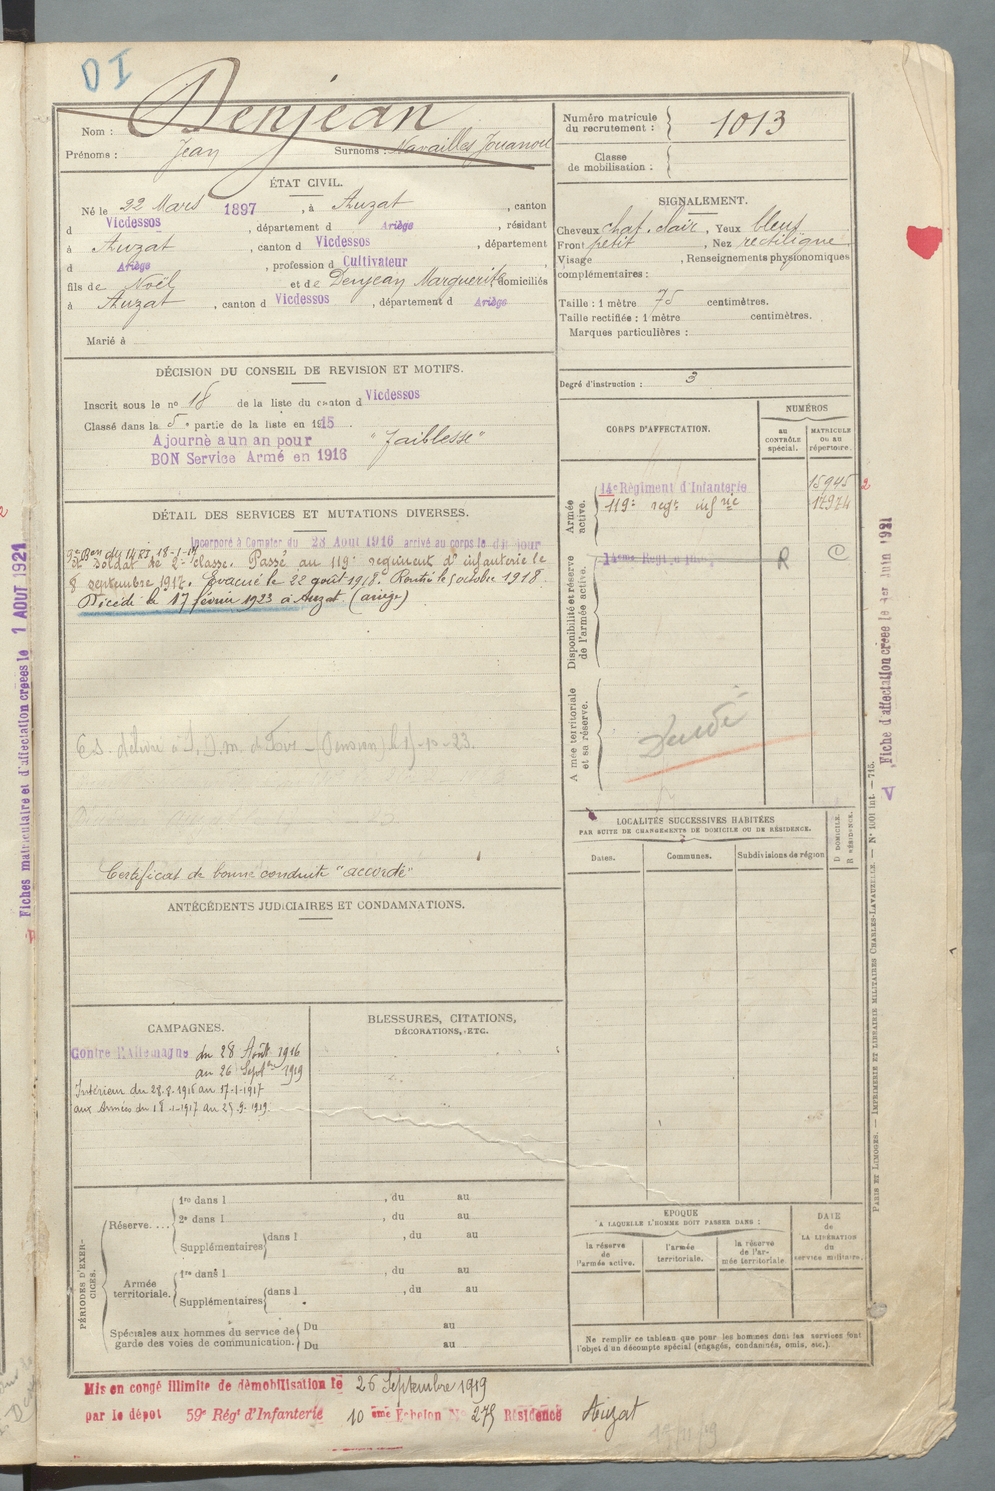 DI
Nom : Denjean
Prénoms : Jean Surnoms : Navailles Jouanou
Numéro matricule du recrutement : 1013
Classe de mobilisation :
ÉTAT CIVIL.
Né le 22 Mars 1897, à Auzat, canton
d Vicdessos, département d Ariège, résidant
à Auzat, canton d Vicdessos, département
d Ariège, profession d Cultivateur
fils de Noël et de Denjean Marguerite, domiciliés
à Auzat, canton d Vicdessos, département d Ariège
Marié à
SIGNALEMENT.
Cheveux chat. clair, Yeux bleus
Front petit, Nez rectiligne
Visage, Renseignements physionomiques
complémentaires :
Taille : 1 mètre 75 centimètres.
Taille rectifiée : 1 mètre centimètres.
Marques particulières :
Degré d'instruction : 3
DÉCISION DU CONSEIL DE REVISION ET MOTIFS.
Inscrit sous le nº 18 de la liste du canton d Vicdessos
Classé dans la 5e partie de la liste en 1915.
Ajourné à un an pour "faiblesse"
BON Service Armé en 1916
DÉTAIL DES SERVICES ET MUTATIONS DIVERSES.
Incorporé à Compter du 28 Aout 1916 arrivé au corps le dit jour
et soldat de 2e classe. Passé au 119e régiment d'infanterie le
8 septembre 1917. Evacué le 22 août 1918. Rentré le 5 octobre 1918.
Décédé le 17 février 1923 à Auzat (ariège)
Certificat de bonne conduite "accordé"
CORPS D'AFFECTATION.
NUMÉROS
au CONTRÔLE spécial.
MATRICULE ou au répertoire.
Armée active.
14e Régiment d'Infanterie 15945
119e regt infrie 17974
Disponibilité et réserve de l'armée active.
R
Armée territoriale et sa réserve.
LOCALITÉS SUCCESSIVES HABITÉES
PAR SUITE DE CHANGEMENTS DE DOMICILE OU DE RÉSIDENCE.
Dates. Communes. Subdivisions de région
D DOMICILE.
R RÉSIDENCE.
ANTÉCÉDENTS JUDICIAIRES ET CONDAMNATIONS.
CAMPAGNES.
Contre l'Allemagne du 28 Août 1916
au 26 Septbre 1919
Intérieur du 28.8.1916 au 17-1-1917
aux Armées du 18-1-1917 au 25.9.1919.
BLESSURES, CITATIONS,
DÉCORATIONS, ETC.
PÉRIODES D'EXERCICES.
Réserve....
1re dans l , du au
2e dans l , du au
Supplémentaires dans l , du au
Armée territoriale.
1re dans l , du au
Supplémentaires dans l , du au
Spéciales aux hommes du service de garde des voies de communication.
Du au
Du au
EPOQUE
A LAQUELLE L'HOMME DOIT PASSER DANS :
la réserve de l'armée active.
l'armée territoriale.
la réserve de l'armée territoriale
DATE de LA LIBÉRATION du service militaire.
Ne remplir ce tableau que pour les hommes dont les services font
l'objet d'un décompte spécial (engagés, condamnés, omis, etc.).
Mis en congé illimité de démobilisation le 26 Septembre 1919
par le dépot 59e Régt d'Infanterie 10 ème Echelon No 275 Résidence Auzat
Fiches matriculaire et d'affectation créées le 1 AOUT 1921
Fiche d'affectation créée le 1er Juin 1921
V
PARIS ET LIMOGES. — IMPRIMERIE ET LIBRAIRIE MILITAIRES CHARLES-LAVAUZELLE. —